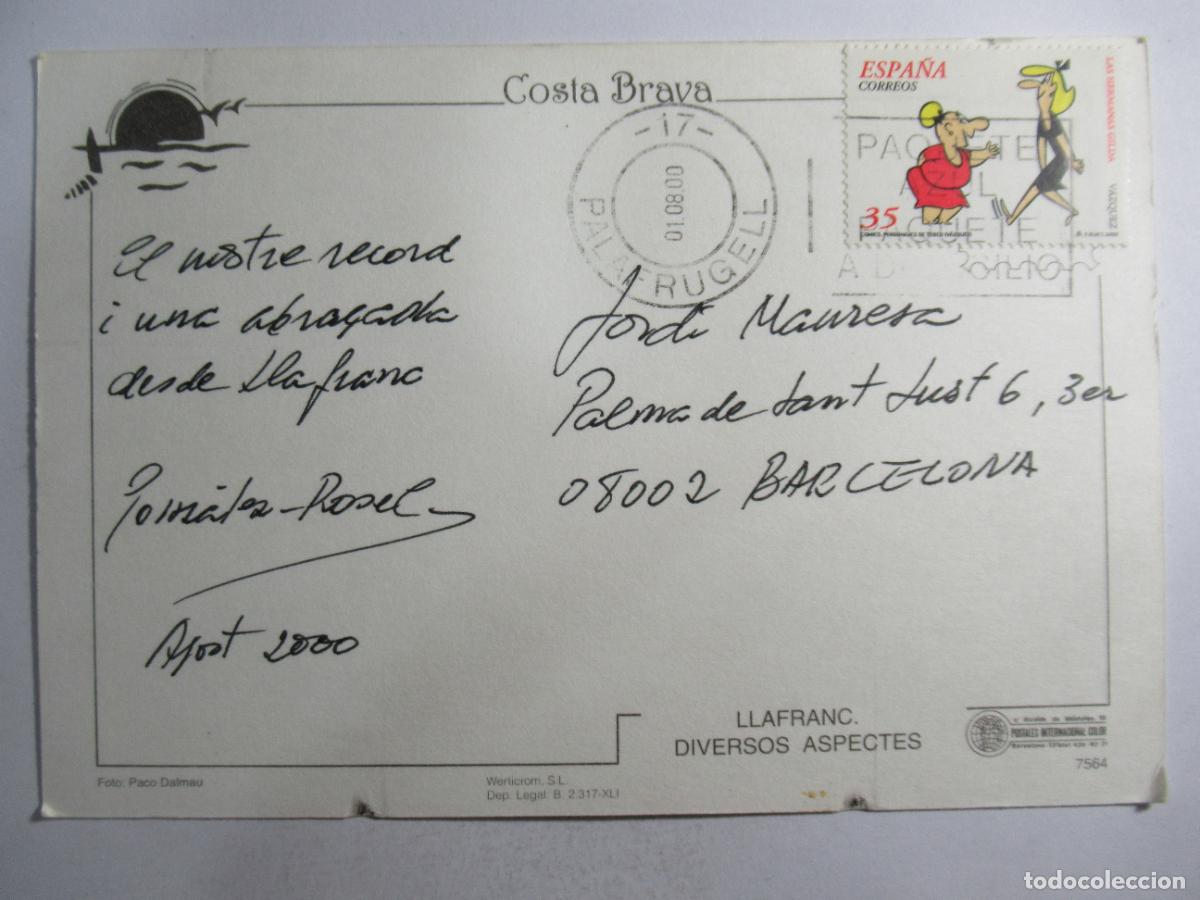 Costa Brava
ESPAÑA
CORREOS
35
LAS HERMANAS GILDA
VAZQUEZ
-17-
01.08.00
PALAFRUGELL
PAQUETE
AZUL
PAQUETE
El nostre record
i una abraçada
desde Llafranc
Agost 2000
Jordi Manresa
Palma de Sant Just 6, 3er
08002 BARCELONA
LLAFRANC.
DIVERSOS ASPECTES
POSTALES INTERNACIONAL COLOR
7564
Foto: Paco Dalmau
Werticrom, S.L.
Dep. Legal B. 2.317-XLI
todocoleccion